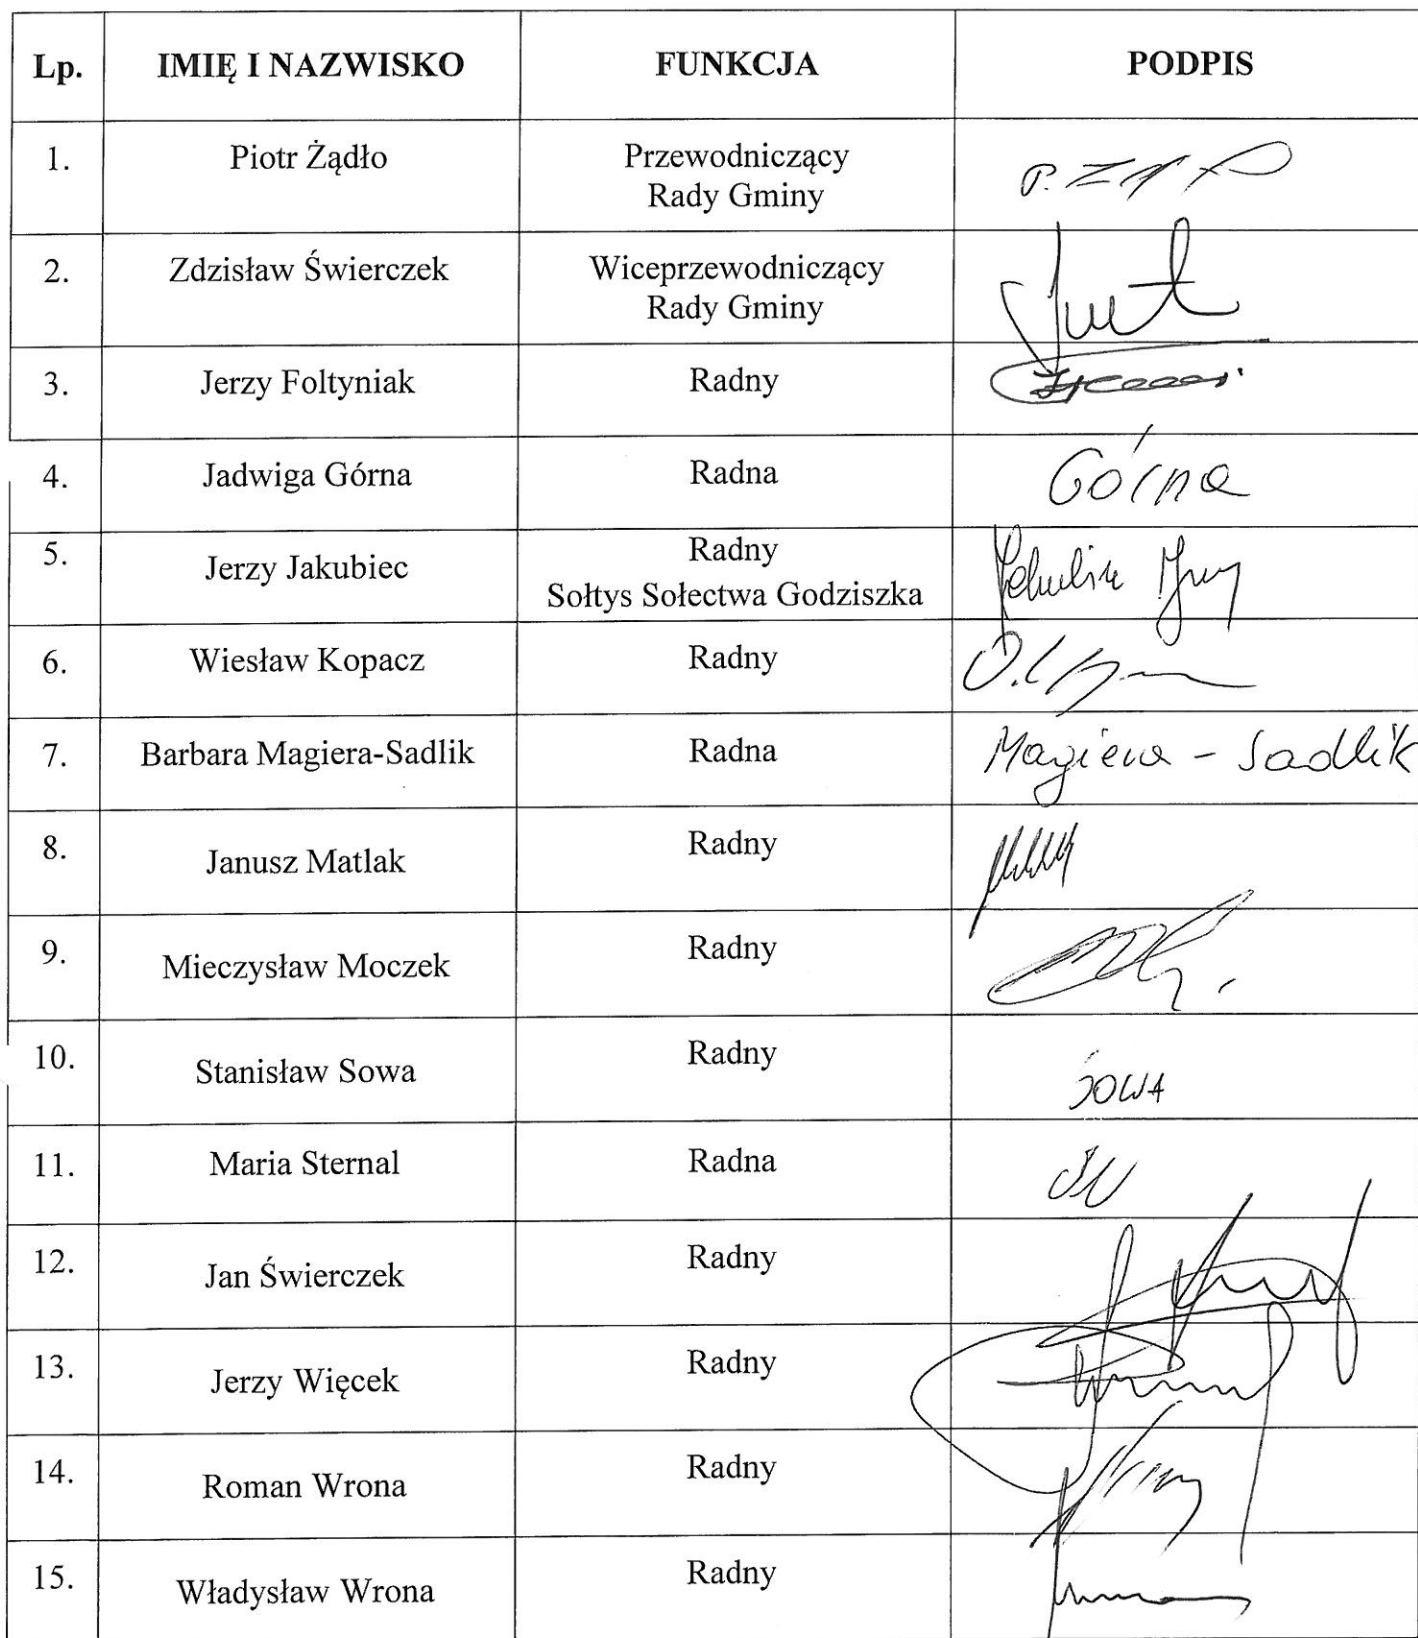 Lp. IMIĘ I NAZWISKO FUNKCJA PODPIS
1. Piotr Żądło Przewodniczący
Rady Gminy
2. Zdzisław Świerczek Wiceprzewodniczący
Rady Gminy
3. Jerzy Foltyniak Radny
4. Jadwiga Górna Radna Górna
5. Jerzy Jakubiec Radny
Sołtys Sołectwa Godziszka
6. Wiesław Kopacz Radny
7. Barbara Magiera-Sadlik Radna Magiera - Sadlik
8. Janusz Matlak Radny
9. Mieczysław Moczek Radny
10. Stanisław Sowa Radny SOWA
11. Maria Sternal Radna
12. Jan Świerczek Radny
13. Jerzy Więcek Radny
14. Roman Wrona Radny
15. Władysław Wrona Radny